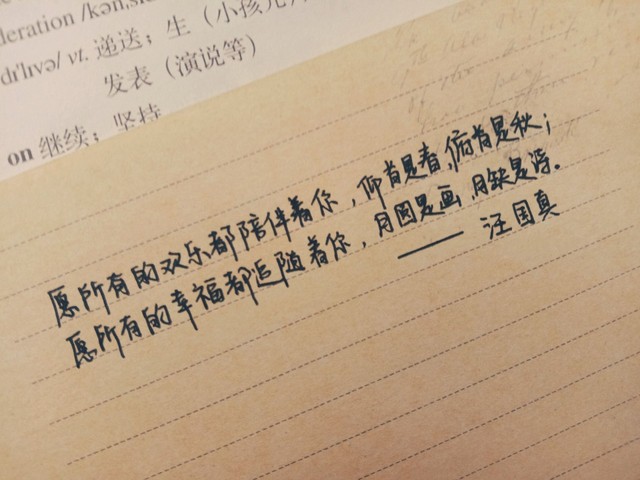 deration /kən,si
dɪ'lɪvə/ vt. 递送；生（小孩儿）
发表（演说等）
on 继续；坚持
愿所有的欢乐都陪伴着你，仰首是春，俯首是秋；
愿所有的幸福都追随着你，月圆是画，月缺是诗。
—— 汪国真